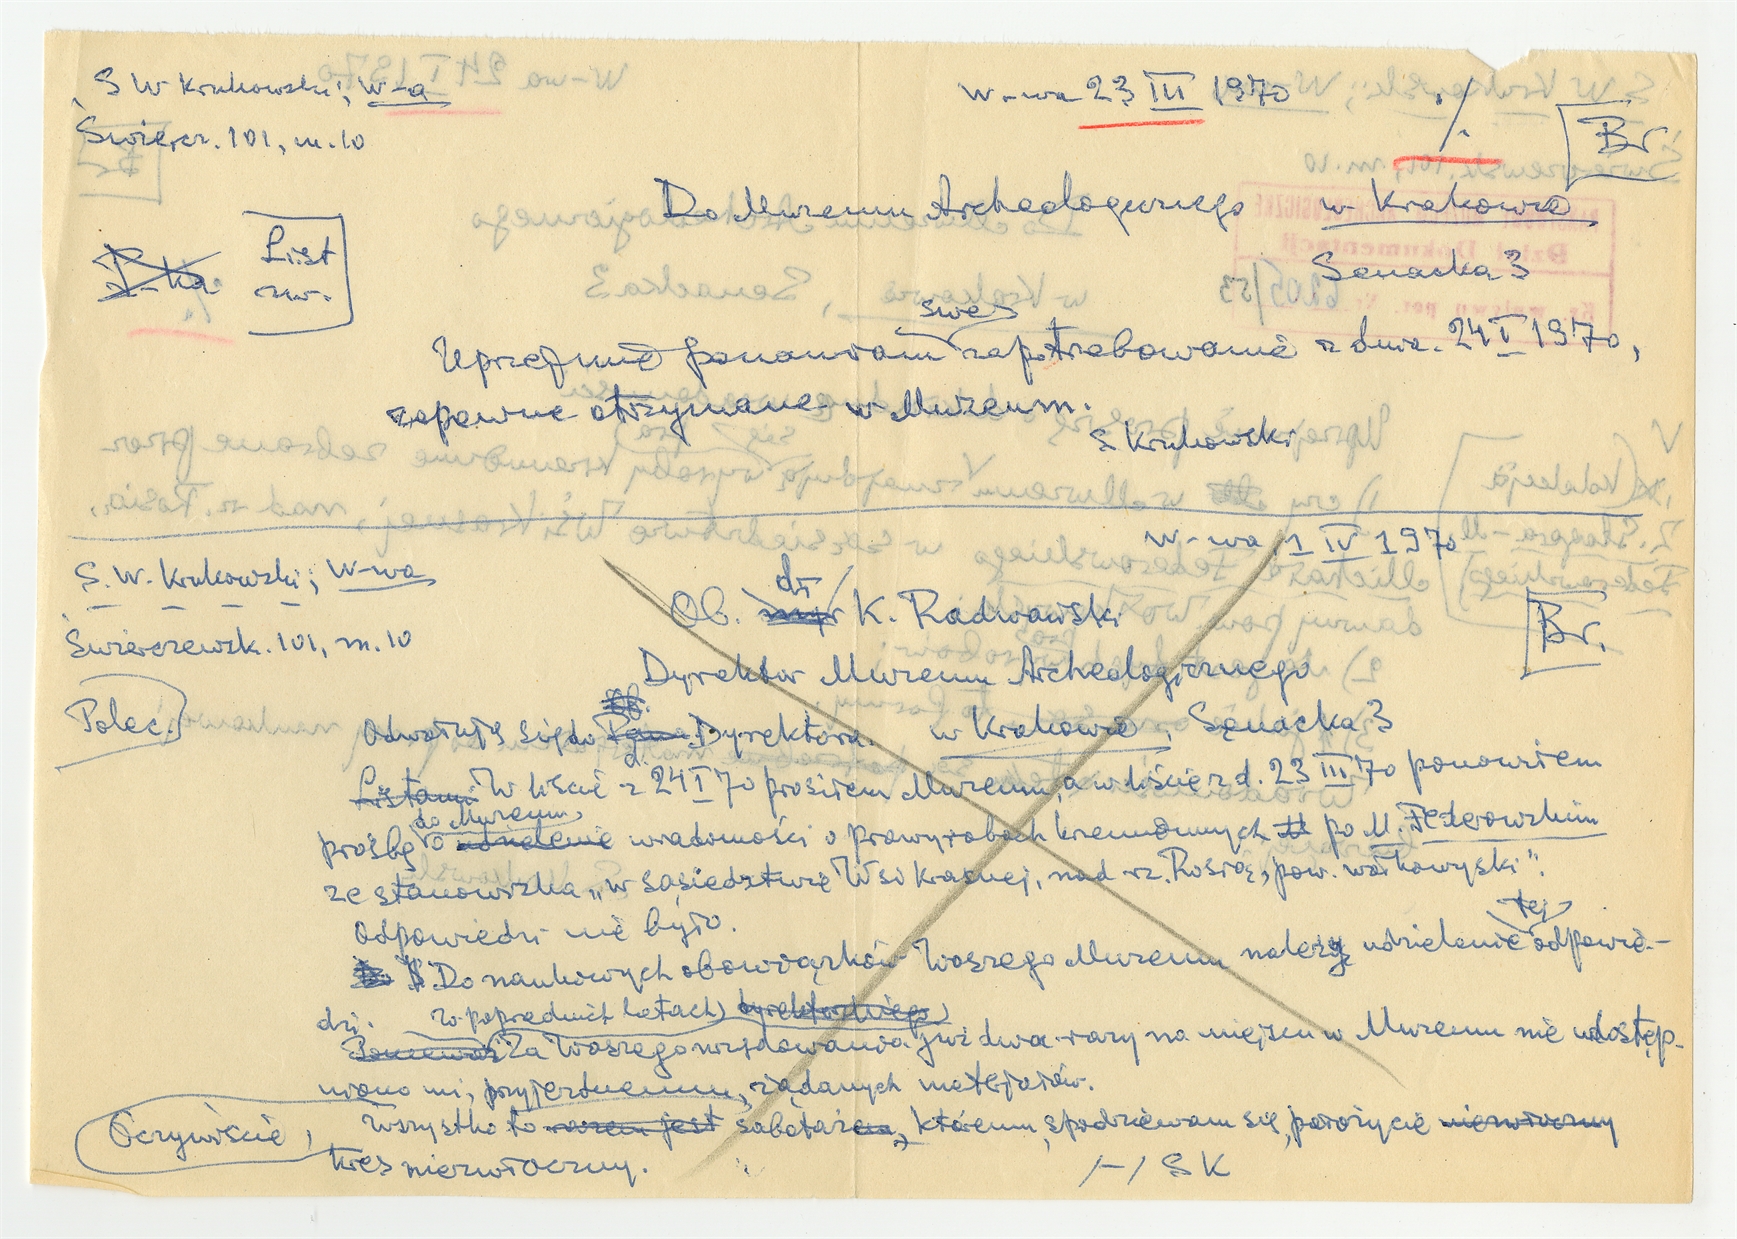 S W Krukowski; W-a
W-wa 23 III 1970
Świercz. 101, m. 10
/.
Br
Do Muzeum Archeologicznego w Krakowie
List
zw.
Senacka 3
swe
Uprzejmie ponawiam zapotrzebowanie z dnia. 24 I 1970,
zapewne otrzymane w Muzeum.
S Krukowski
W-wa, 1 IV 1970
S. W. Krukowski; W-wa
dr
Ob. mgr K. Radwański
Świerczewsk. 101, m. 10
Br.
Dyrektor Muzeum Archeologicznego
Polec.
w Krakowie, Senacka 3
Ob.
Odwołuję się do Pana Dyrektora.
Listami W liście z d. 24 I 70 prosiłem Muzeum, a w liście z d. 23 III 70 ponowiłem
do Muzeum
prośbę o udzielenie wiadomości o prawyrobach krzemiennych po M. Federowskim
ze stanowiska „w sąsiedztwie Wsi Krasnej, nad rz. Rosią, pow. wołkowyski".
Odpowiedzi nie było.
tej
Do naukowych obowiązków Waszego Muzeum należy udzielenie odpowie-
dzi.
w poprzednich latach, dyrektorskiego
Ponieważ Za Waszego urzędowania już dwa razy na miejscu w Muzeum nie udostęp-
niono mi, przyjezdnemu, żądanych materjałów.
Oczywiście,
Wszystko to razem jest sabotażem, któremu, spodziewam się, położycie niezwłoczny
kres niezwłoczny.
/-/ S K